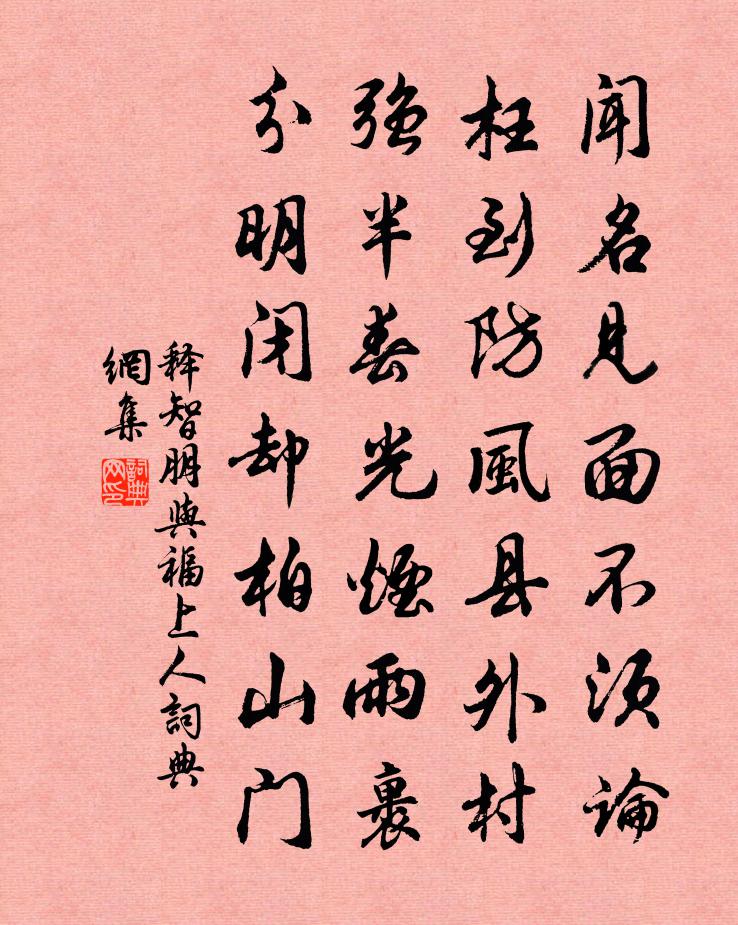 闻名见面不须論
枉到防風县外村
强半春光煙雨裏
分明闭却柏山门
释智朋與福上人詞典
網集
詞典
网印